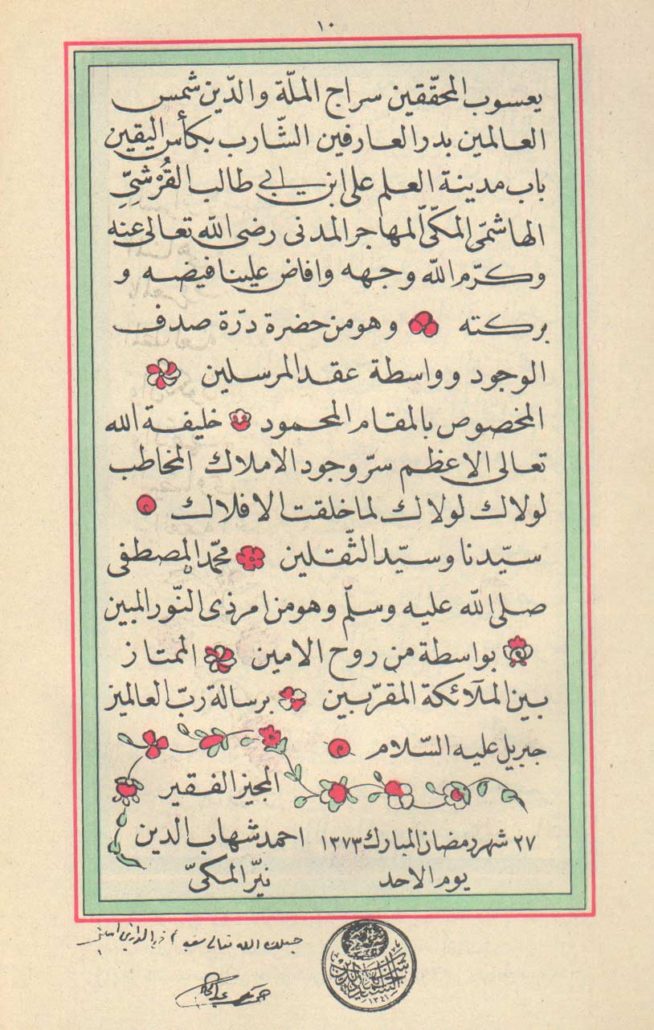 ١٠
يعسوب المحقّقين سراج الملّة والدّين شمس
العالمين بدر العارفين الشّارب بكأس اليقين
باب مدينة العلم على ابن ابي طالب القُرَشيِّ
الهاشمّى المكىّ المهاجر المدنى رضى الله تعالى عنه
وكرّم الله وجهه وافاض علينا فيضه و
بركته وهو من حضرة درّة صدف
الوجود وواسطة عقد المرسلين
المخصوص بالمقام المحمود خليفة الله
تعالى الاعظم سرّ وجود الاملاك المخاطب
لولاك لولاك لما خلقت الافلاك
سيّدنا وسيّد الثّقلين محمّد المصطفى
صلى الله عليه وسلّم وهو من امر ذى النّور المبين
بواسطة من روح الامين الممتاز
بين الملآئكة المقرّبين برسالة ربّ العالمين
جبريل عليه السّلام
المجيز الفقير
٢٧ شهر رمضان المبارك ١٣٧٣ احمد شهاب الدين
يوم الاحد نيّر المكىّ
الله تعالى